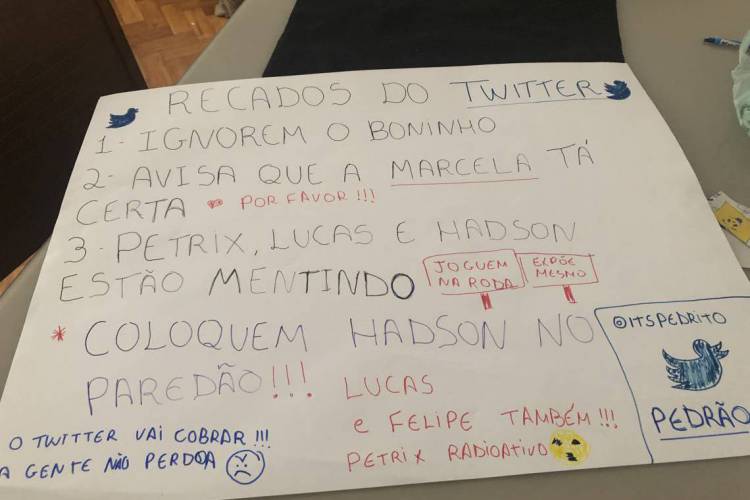 RECADOS DO TWITTER
1- IGNOREM O BONINHO
2- AVISA QUE A MARCELA TÁ
CERTA * POR FAVOR!!!
3- PETRIX, LUCAS E HADSON
ESTÃO MENTINDO
JOGUEM
NA RODA
EXPÕE
MESMO
* COLOQUEM HADSON NO
PAREDÃO!!! LUCAS
e FELIPE TAMBÉM!!!
PETRIX RADIOATIVO
@ITSPEDRITO
PEDRÃO
O TWITTER VAI COBRAR!!!
A GENTE NÃO PERDOA